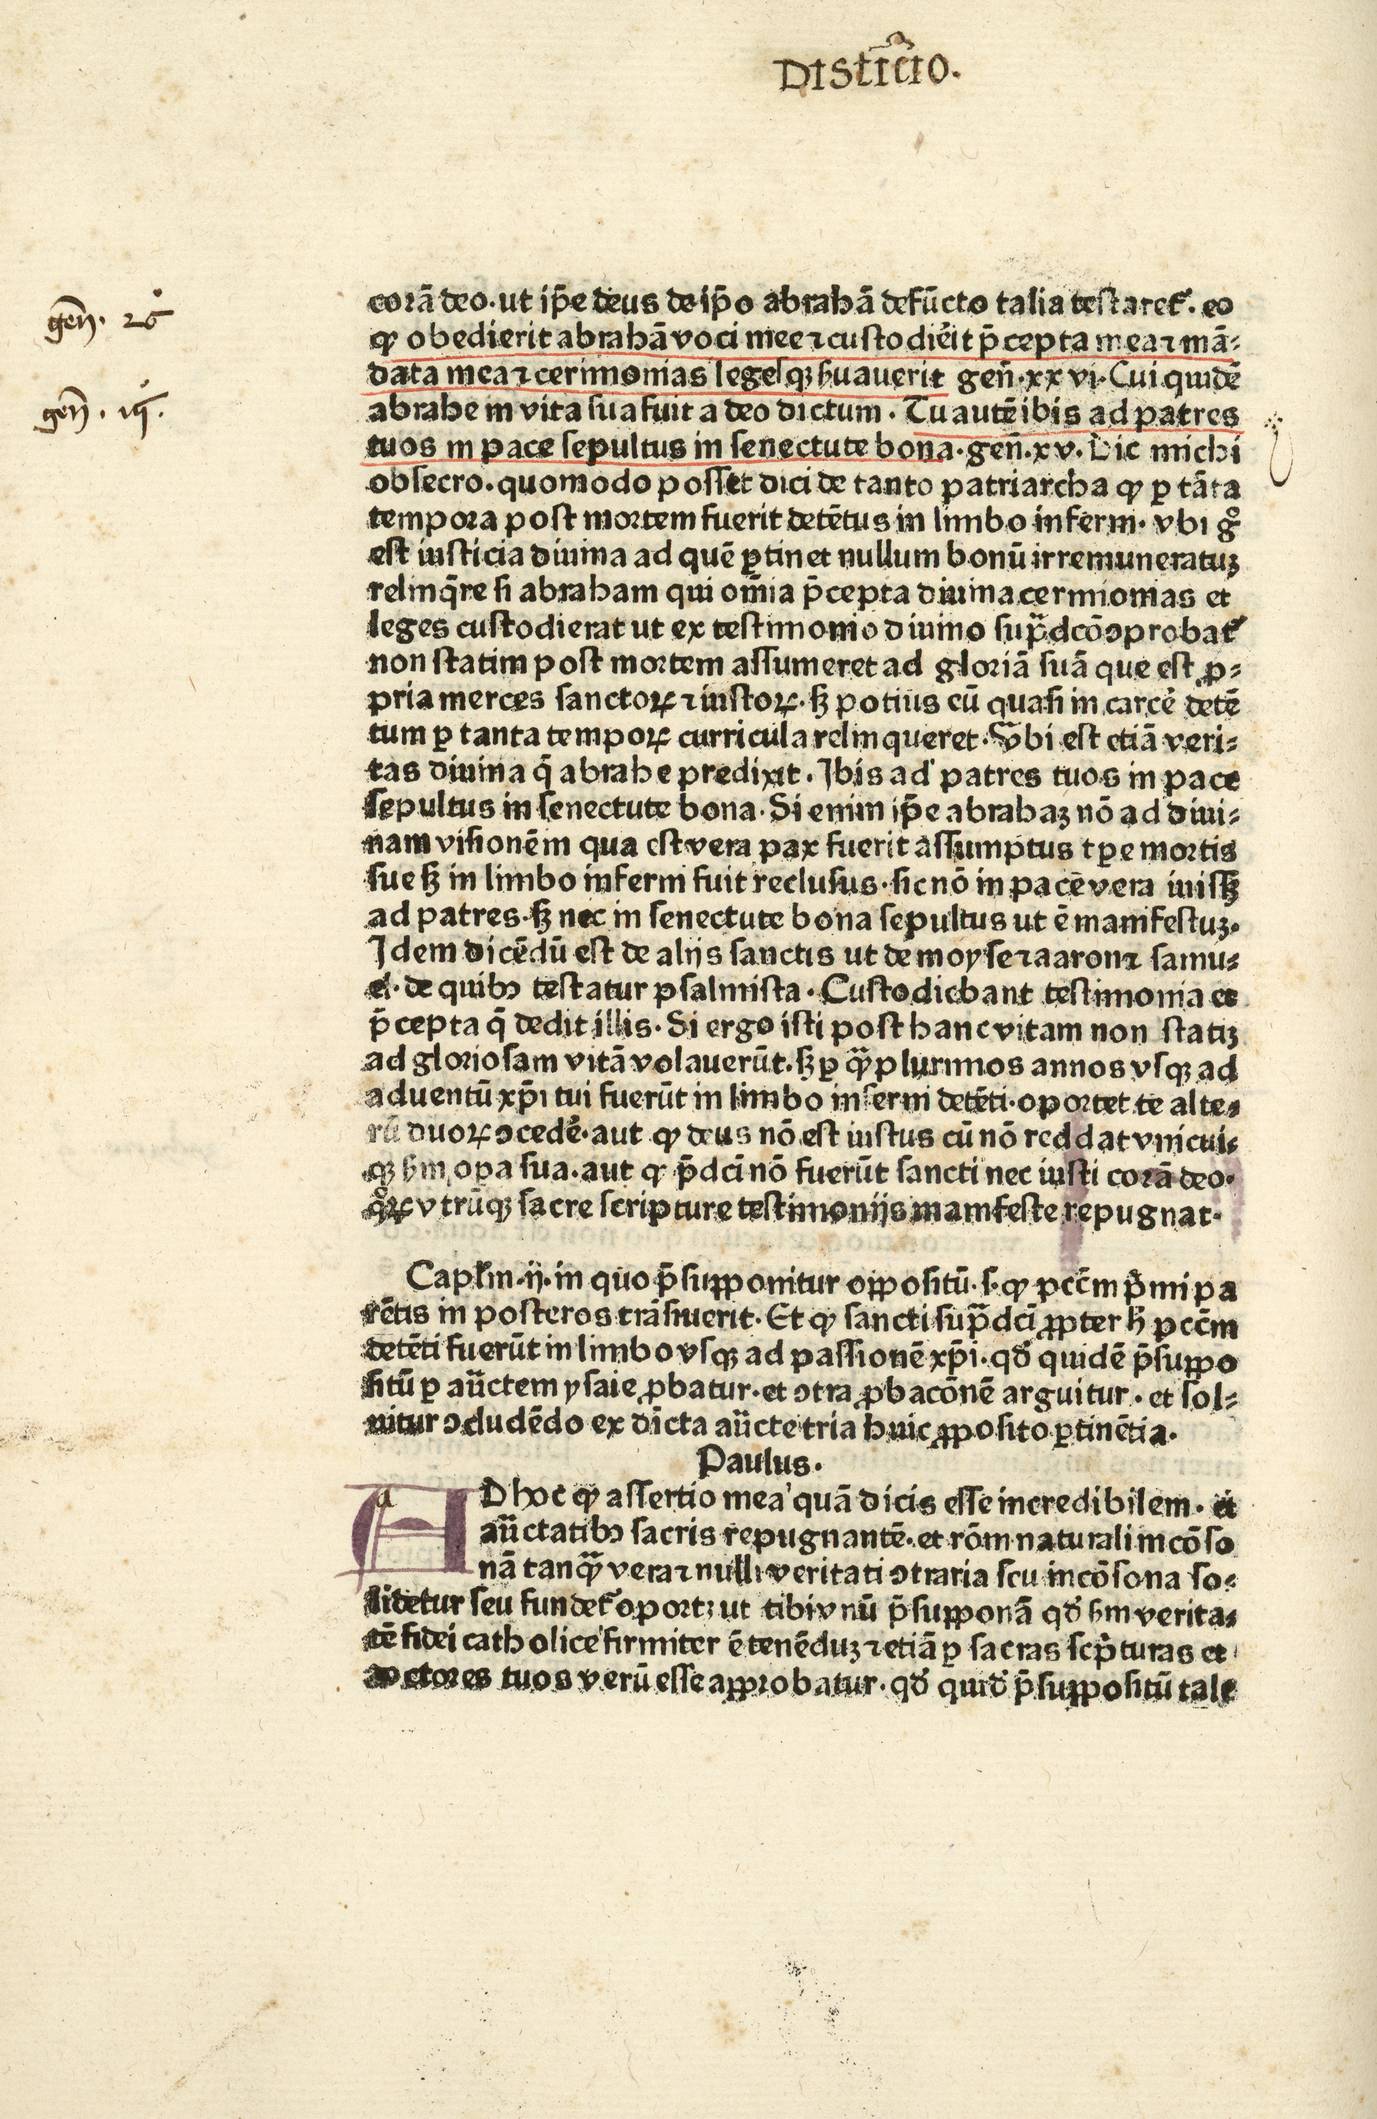 DISTĪCIO.
gen̄. 26
gen̄. 15.
corā deo. ut ip̄e deus de ip̄o abrahā defūcto talia testaret᷑. eo
qꝙ obedierit abrahā voci mee ⁊ custodiēit p̄cepta mea ⁊ mā-
data mea ⁊ cerimonias legesqꝫ ẜuauerit gen̄. xxvi. Cui quidē
abrahe in vita sua fuit a deo dictum. Tu autē ibis ad patres
tuos in pace sepultus in senectute bona. gen̄. xv. Dic michi
obsecro. quomodo posset dici de tanto patriarcha ꝙ ꝑ tāta
tempora post mortem fuerit detētus in limbo inferni. vbi gͦ
est iusticia diuina ad quē ꝑtinet nullum bonū irremuneratuꝫ
relinq̄re si abraham qui om̄ia p̄cepta diuina cerimonias et
leges custodierat ut ex testimonio diuino sup̄dcō ꝯprobat᷑
non statim post mortem assumeret ad gloriā suā que est ꝓ-
pria merces sanctoꝝ ⁊ iustoꝝ. sꝫ potius eū quasi in carcē detē
tum ꝑ tanta tempoꝝ curricula relinqueret. Vbi est etiā veri-
tas diuina q̄ abrahe predixit. Ibis ad patres tuos in pace
sepultus in senectute bona. Si enim ip̄e abrahaꝫ nō ad diui-
nam visionēm qua est vera pax fuerit assumptus tꝑe mortis
sue sꝫ in limbo inferni fuit reclusus. sic nō in pacē vera iuissꝫ
ad patres. sꝫ nec in senectute bona sepultus ut ē manifestuꝫ.
Idem dicēdū est de alijs sanctis ut de moyse ⁊ aaron ⁊ samu-
el. de quibꝰ testatur psalmista. Custodiebant testimonia et
p̄cepta q̄ dedit illis. Si ergo isti post hanc vitam non statiꝫ
ad gloriosam vitā volauerūt. sꝫ ꝑ qᷓꝫplurimos annos vsqꝫ ad
aduentū xp̄i tui fuerūt in limbo inferni detēti. oportet te alte-
rū duoꝝ ꝯcedē. aut ꝙ deus nō est iustus cū nō reddat vnicui-
qꝫ ẜm opa sua. aut ꝙ p̄dcī nō fuerūt sancti nec iusti corā deo.
qͦꝝ vtrūqꝫ sacre scripture testimonijs manifeste repugnat.
Caplm. ij. in quo p̄supponitur oppositū. s. ꝙ pccm̄ p̄mi pa
rētis in posteros trāsiuerit. Et ꝙ sancti sup̄dcī ꝓpter ħ pccm̄
detēti fuerūt in limbo vsqꝫ ad passionē xp̄i. qđ quidē p̄suppo
sitū ꝑ auc̄tem ysaie ꝓbatur. et ꝯtra ꝓbacōnē arguitur. et sol-
uitur ꝯcludēdo ex dic̄ta auc̄te tria huic ꝓposito ꝑtinētia.
Paulus.
AD hoc ꝙ assertio mea quā dicis esse incredibilem. et
auc̄tatibꝰ sacris repugnantē. et rōm naturali incōso
nā tanqᷓꝫ vera ⁊ nulli veritati ꝯtraria seu incōsona so-
lidetur seu fundet᷑ oportꝫ ut tibi vnū p̄supponā qđ ẜm verita-
tē fidei catholice firmiter ē tenēduꝫ ⁊ etiā ꝑ sacras scp̄turas et
doctores tuos verū esse approbatur. qđ quidē p̄suppositū tale